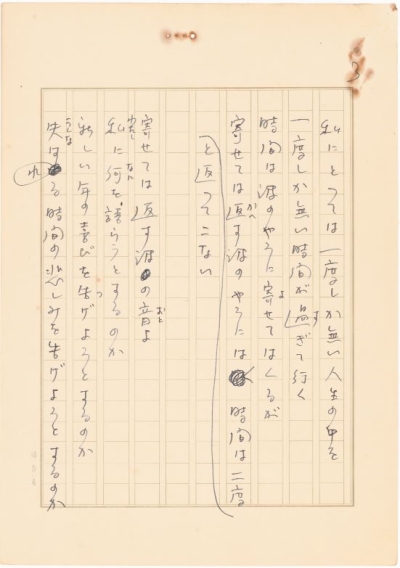 3
私にとっては一度しか無い人生の中を
一度しか無い時間が過ぎて行く
時間は波のやうに寄せてはくるが
寄せては返す波のやうには時間は二度
と返ってこない
寄せては返す波の音よ
私に何を語らうとするのか
新しい年の喜びを告げようとするのか
失はれる時間の悲しみを告げようとするのか